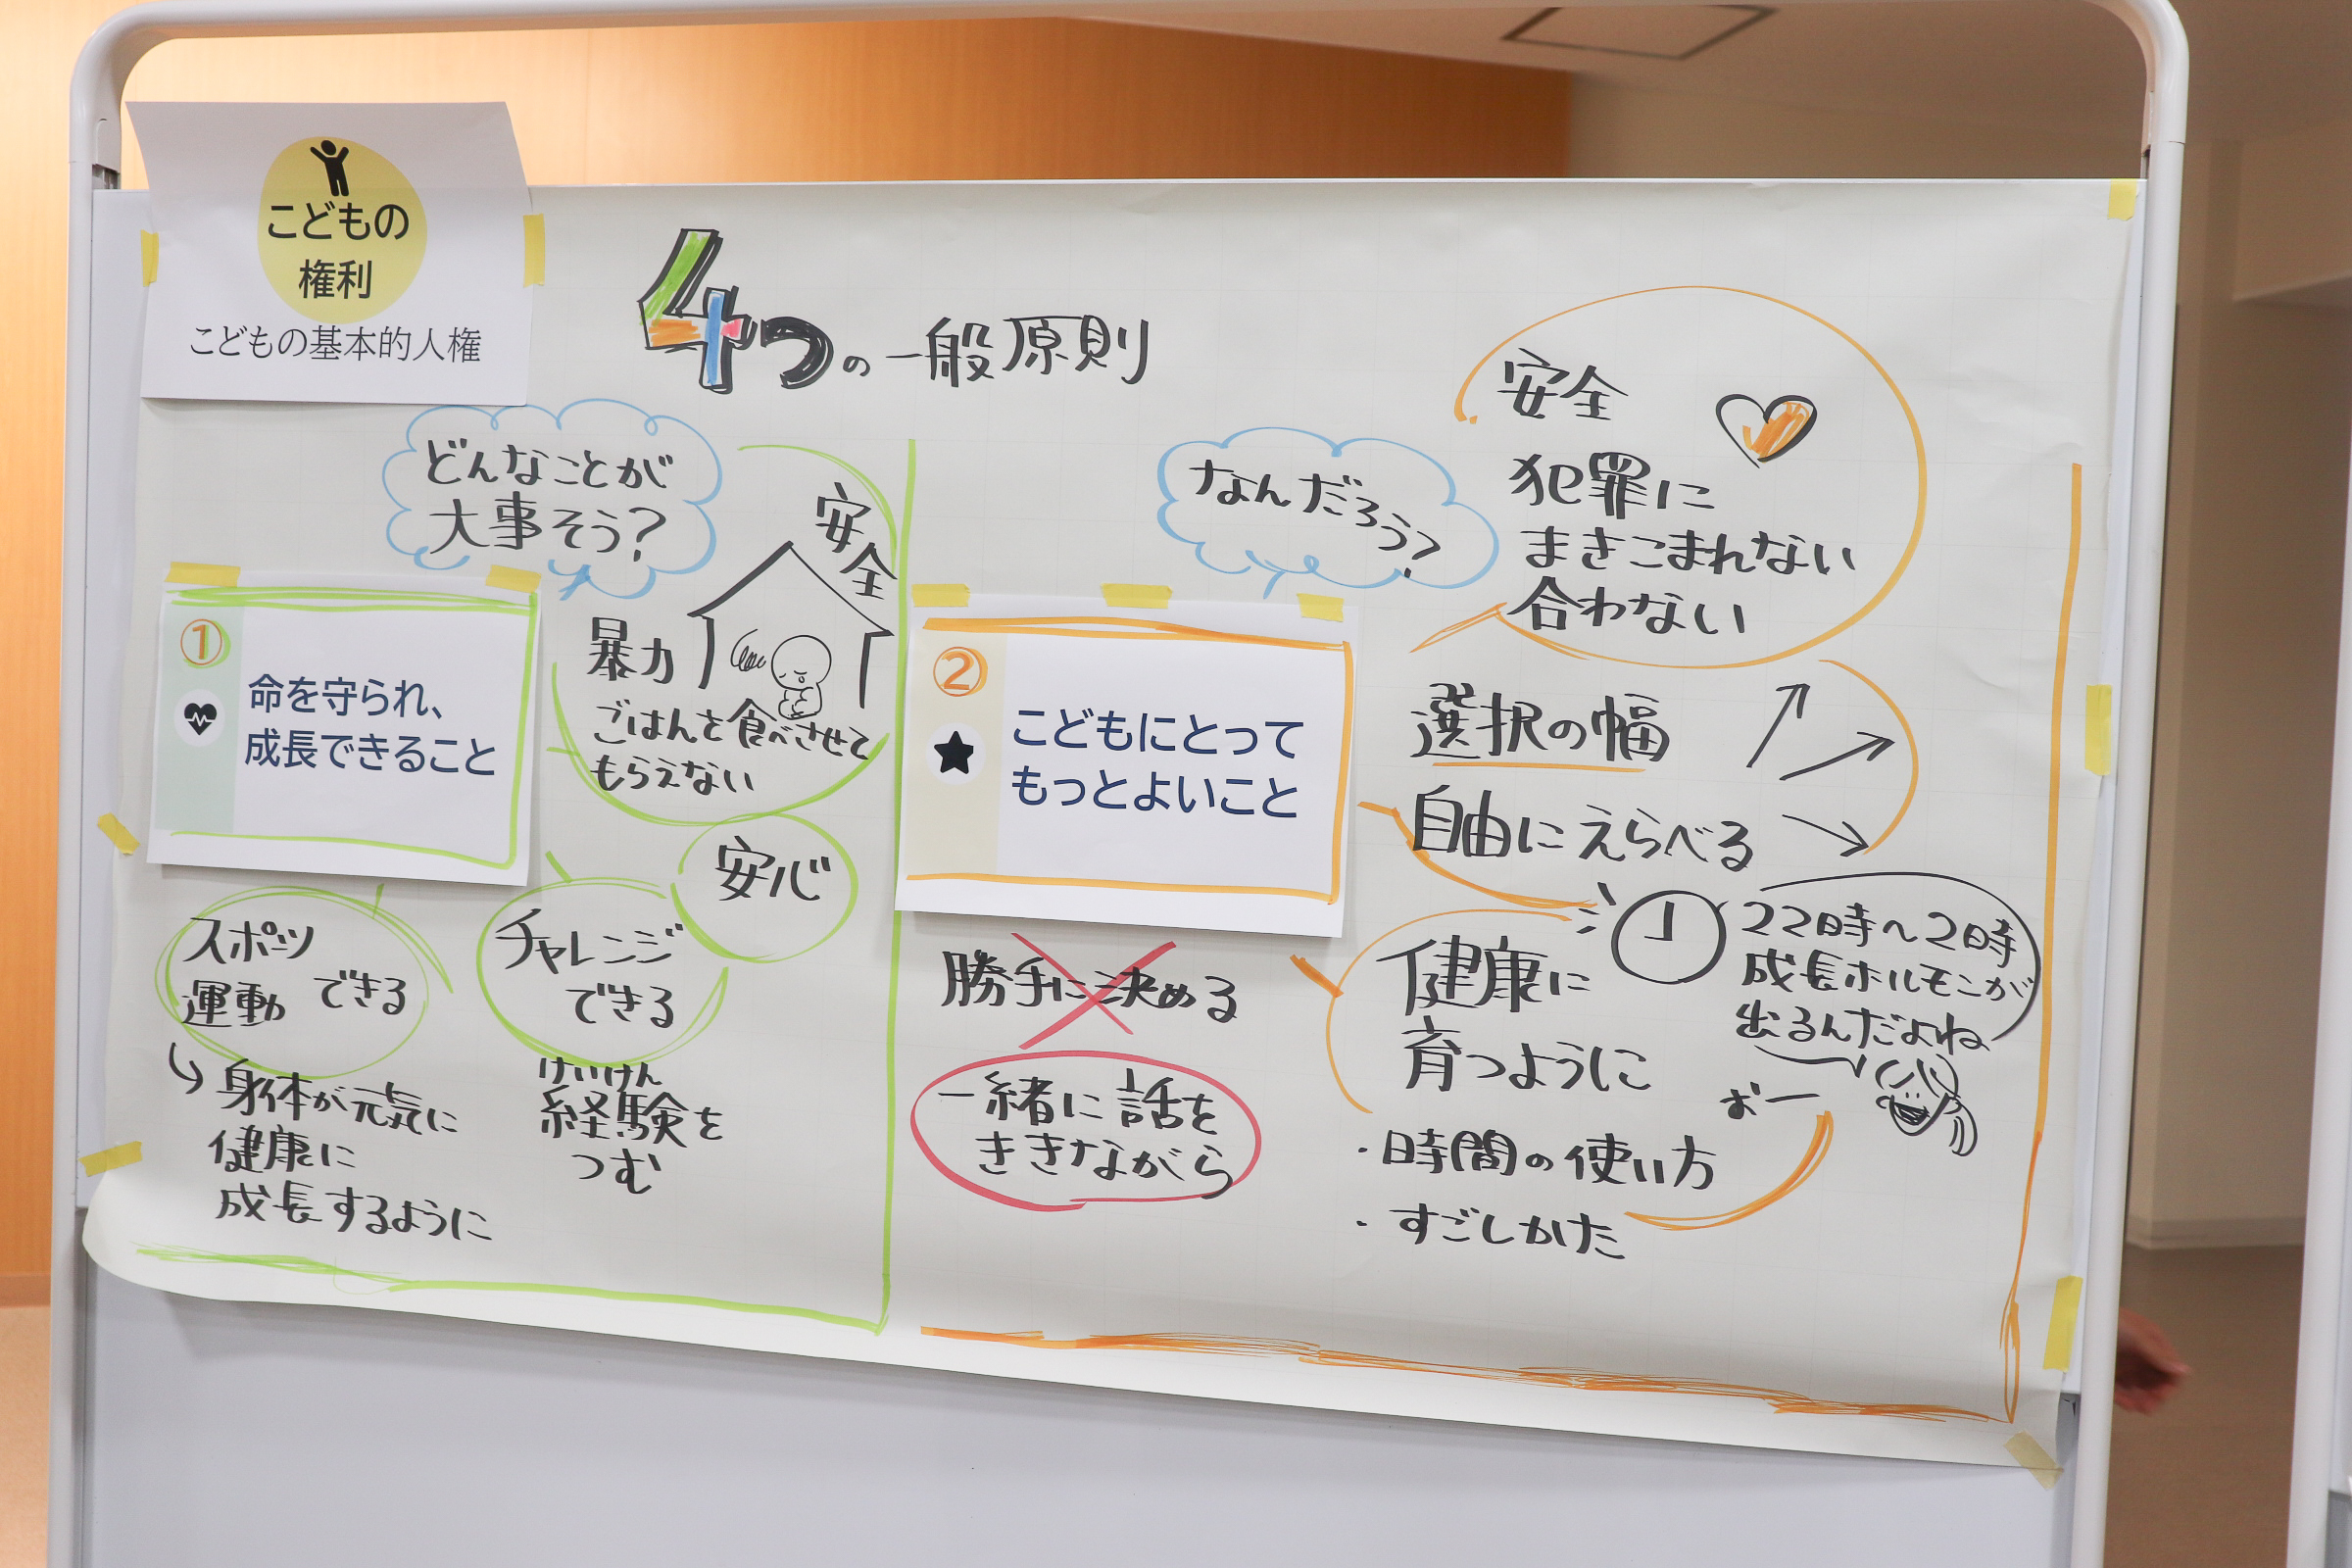 こどもの
権利
こどもの基本的人権
4つの一般原則
どんなことが
大事そう?
①
命を守られ、
成長できること
安全
暴力
ごはんを食べさせて
もらえない
安心
チャレンジ
できる
けいけん
経験を
つむ
スポーツ
運動 できる
身体が元気に
健康に
成長するように
なんだろう?
②
こどもにとって
もっとよいこと
安全
犯罪に
まきこまれない
合わない
選択の幅
自由にえらべる
健康に
育つように
22時~2時
成長ホルモンが
出るんだよね
・時間の使い方
・すごしかた
勝手に決める
一緒に話を
ききながら